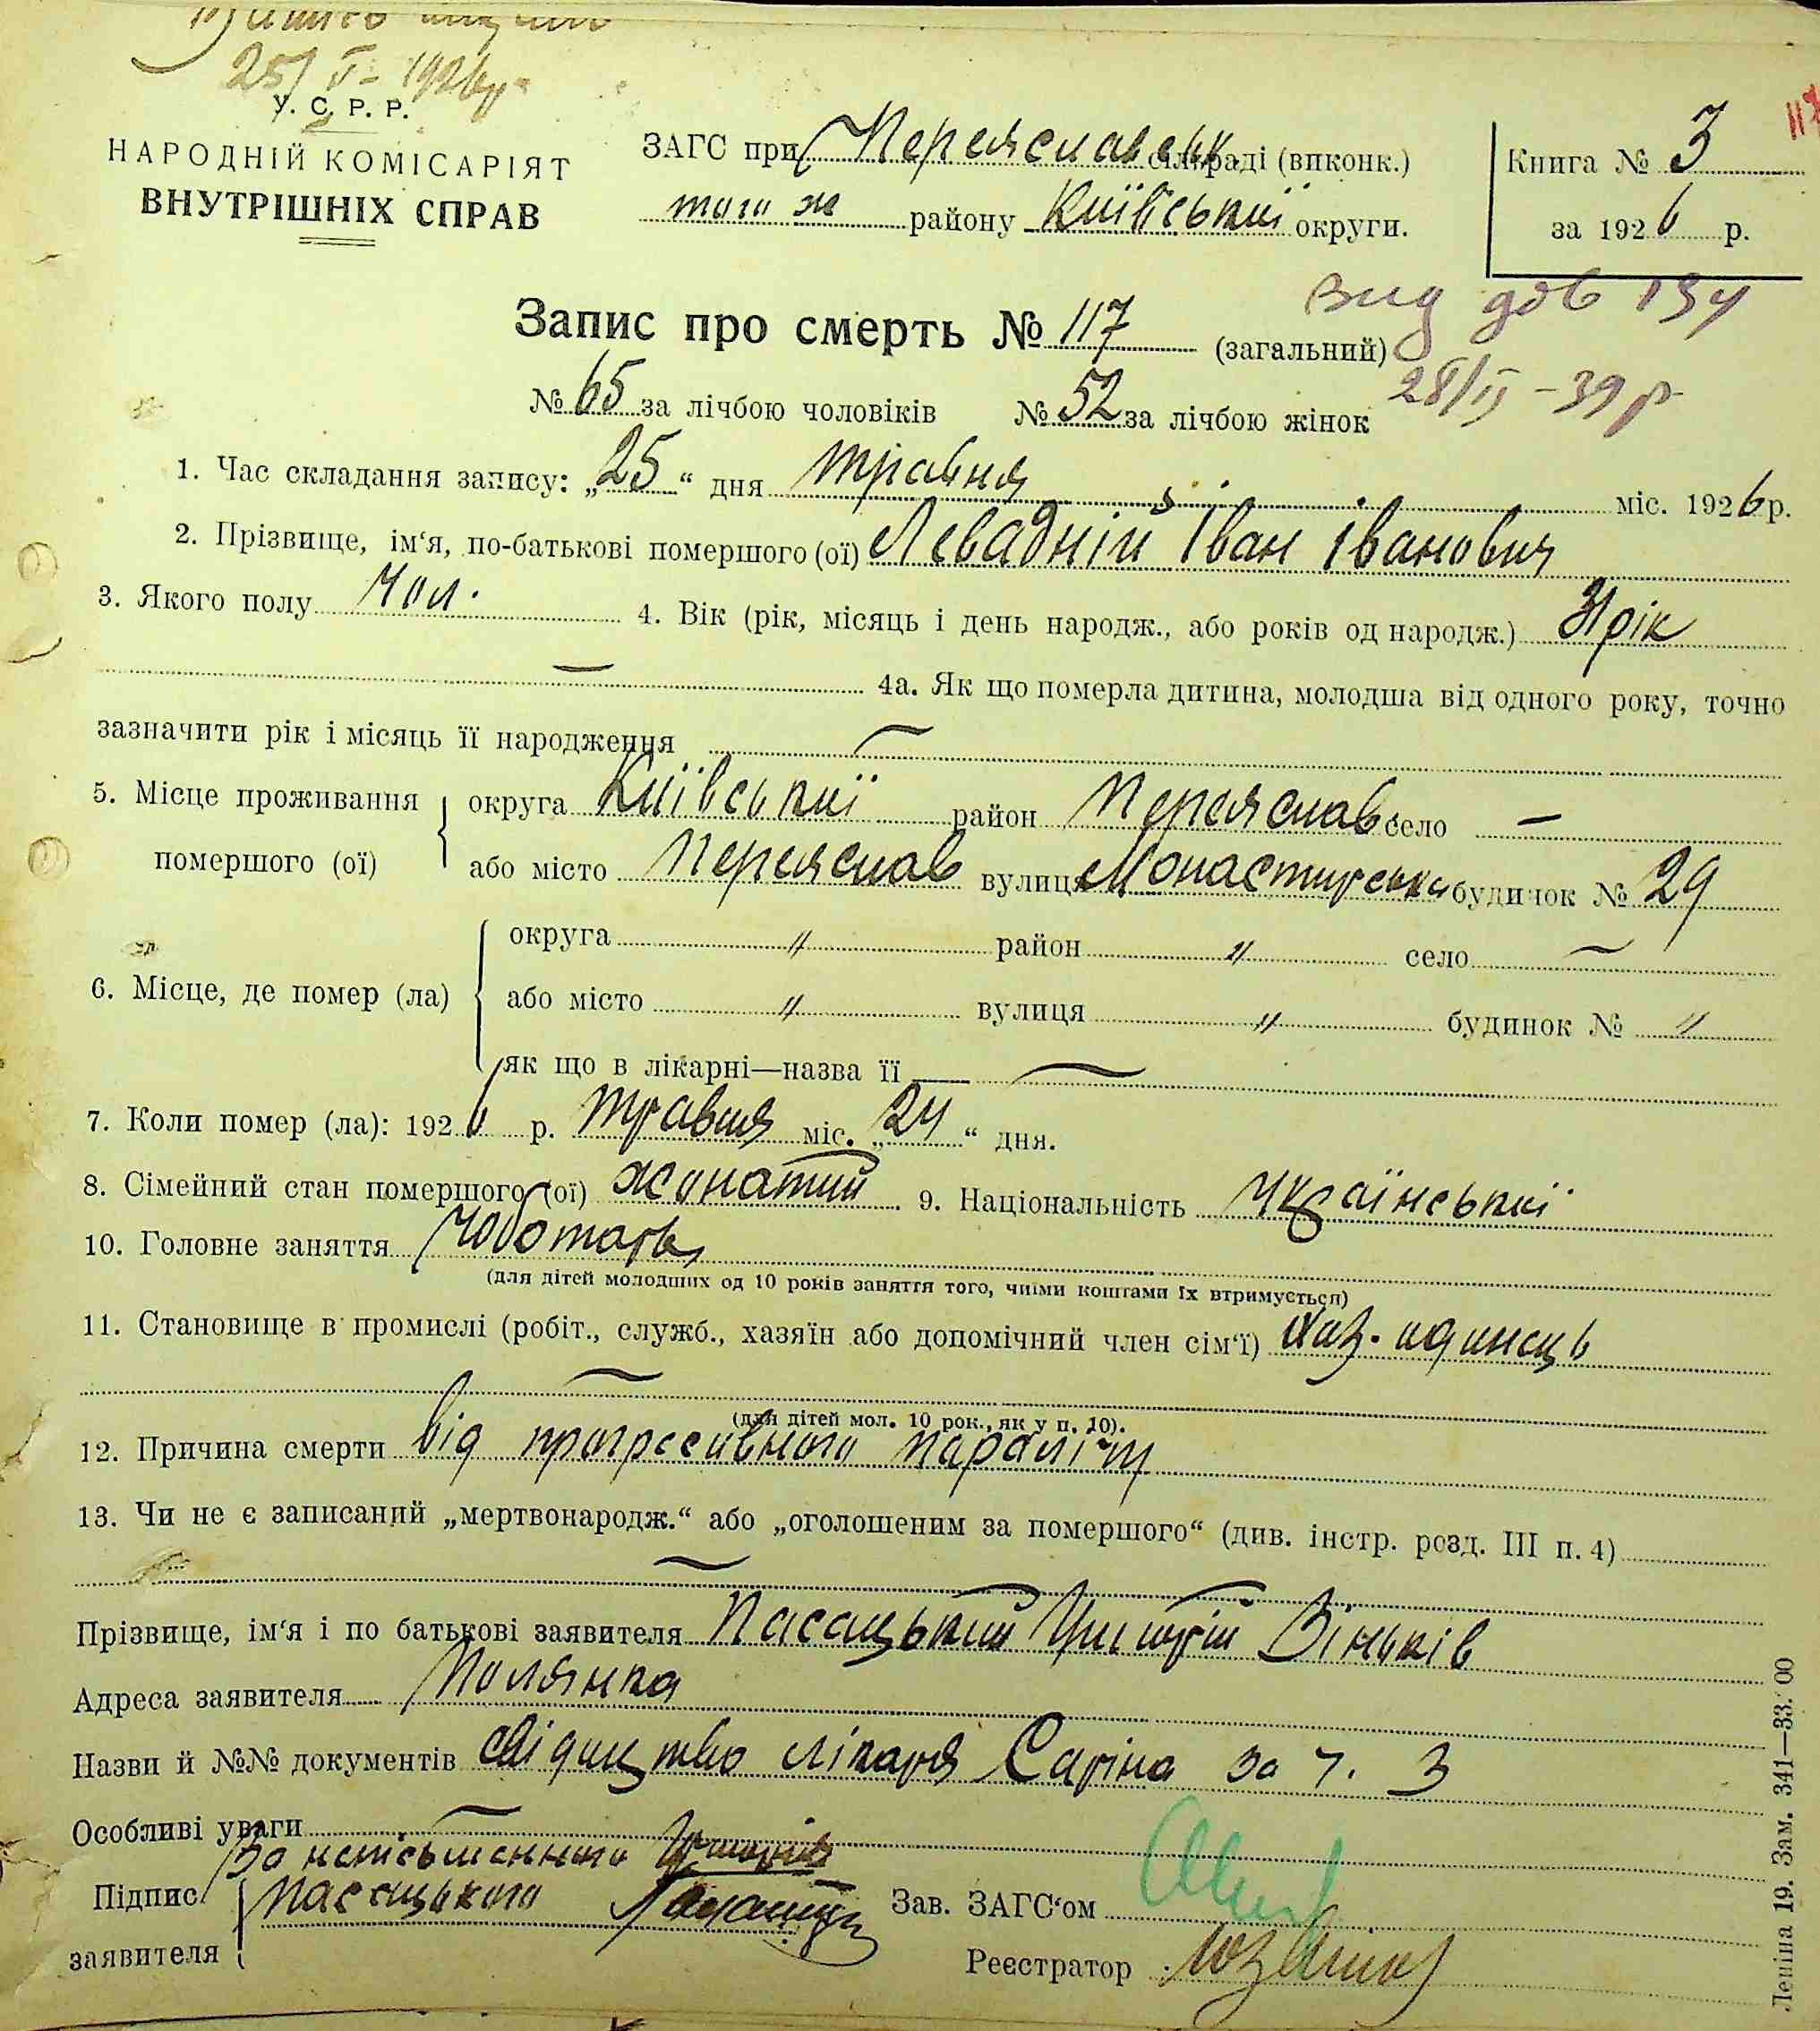 25/V - 1926 р.
У. С. Р. Р.
НАРОДНІЙ КОМІСАРІЯТ
ВНУТРІШНІХ СПРАВ
ЗАГС при Переяславськ. сільраді (виконк.)
того ж району Київської округи.
Книга № 3
за 1926 р.
117
Запис про смерть № 117 (загальний)
вид дов 134
28/II - 39 р
№ 65 за лічбою чоловіків № 52 за лічбою жінок
1. Час складання запису: „25“ дня травня міс. 1926 р.
2. Прізвище, ім‘я, по-батькові помершого (ої) Левадній Іван Іванович
3. Якого полу чол. 4. Вік (рік, місяць і день народж., або років од народж.) 31 рік
— 4а. Як що померла дитина, молодша від одного року, точно
зазначити рік і місяць її народження —
5. Місце проживання помершого (ої) округа Київської район Переяслав село —
або місто Переяслав вулиця Монастирська будинок № 29
6. Місце, де помер (ла) округа „ район „ село —
або місто „ вулиця „ будинок № „
як що в лікарні—назва її —
7. Коли помер (ла): 1926 р. травня міс. „24“ дня.
8. Сімейний стан помершого (ої) жонатий 9. Національність Української
10. Головне заняття Чоботарь
(для дітей молодших од 10 років заняття того, чиїми коштами їх втримується)
11. Становище в промислі (робіт., служб., хазяїн або допомічний член сім‘ї) хаз. одинець
—
(для дітей мол. 10 рок., як у п. 10).
12. Причина смерти від прогресивного паралічу
13. Чи не є записаний „мертвонародж.“ або „оголошеним за помершого“ (див. інстр. розд. III п. 4)
—
Прізвище, ім‘я і по батькові заявителя Пасацький Зіньків
Адреса заявителя Полянка
Назви й №№ документів свідицтво лікаря Саріна за ч. 3
Особливі уваги —
За неписьменного
Підпис заявителя Пасацького
Зав. ЗАГС‘ом
Реєстратор
Леніна 19. Зам. 341—33.000